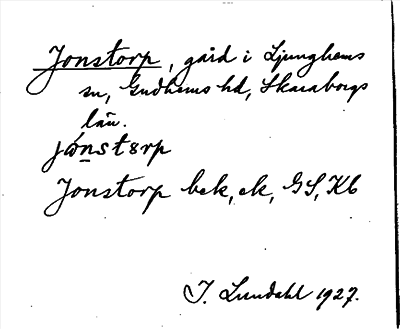 Jonstorp, gård i Ljunghems
sn, Gudhems hd, Skaraborgs
län.
Jonstorp bek, ek, GS, Kb
I. Lundahl 1927.